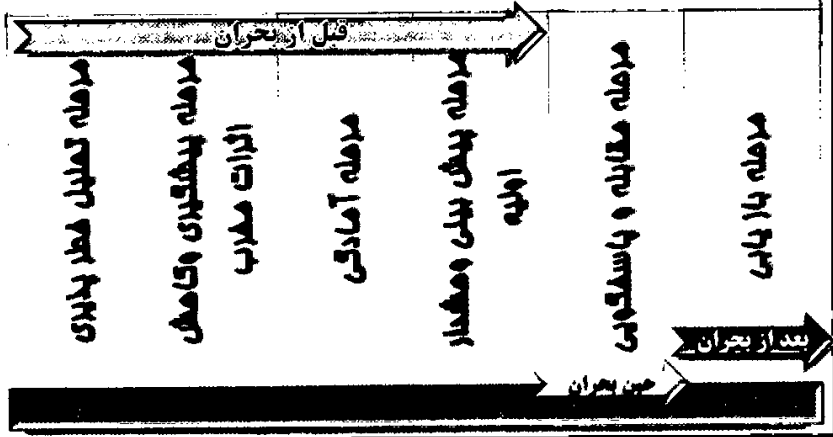 قبل از بحران
مرحله تحلیل خطر پذیری
مرحله پیشگیری وکاهش
اثرات مخرب
مرحله آمادگی
مرحله پیش بینی وهشدار
اولیه
مرحله مقابله و پاسخگویی
مرحله باز یابی
بعد از بحران
حین بحران